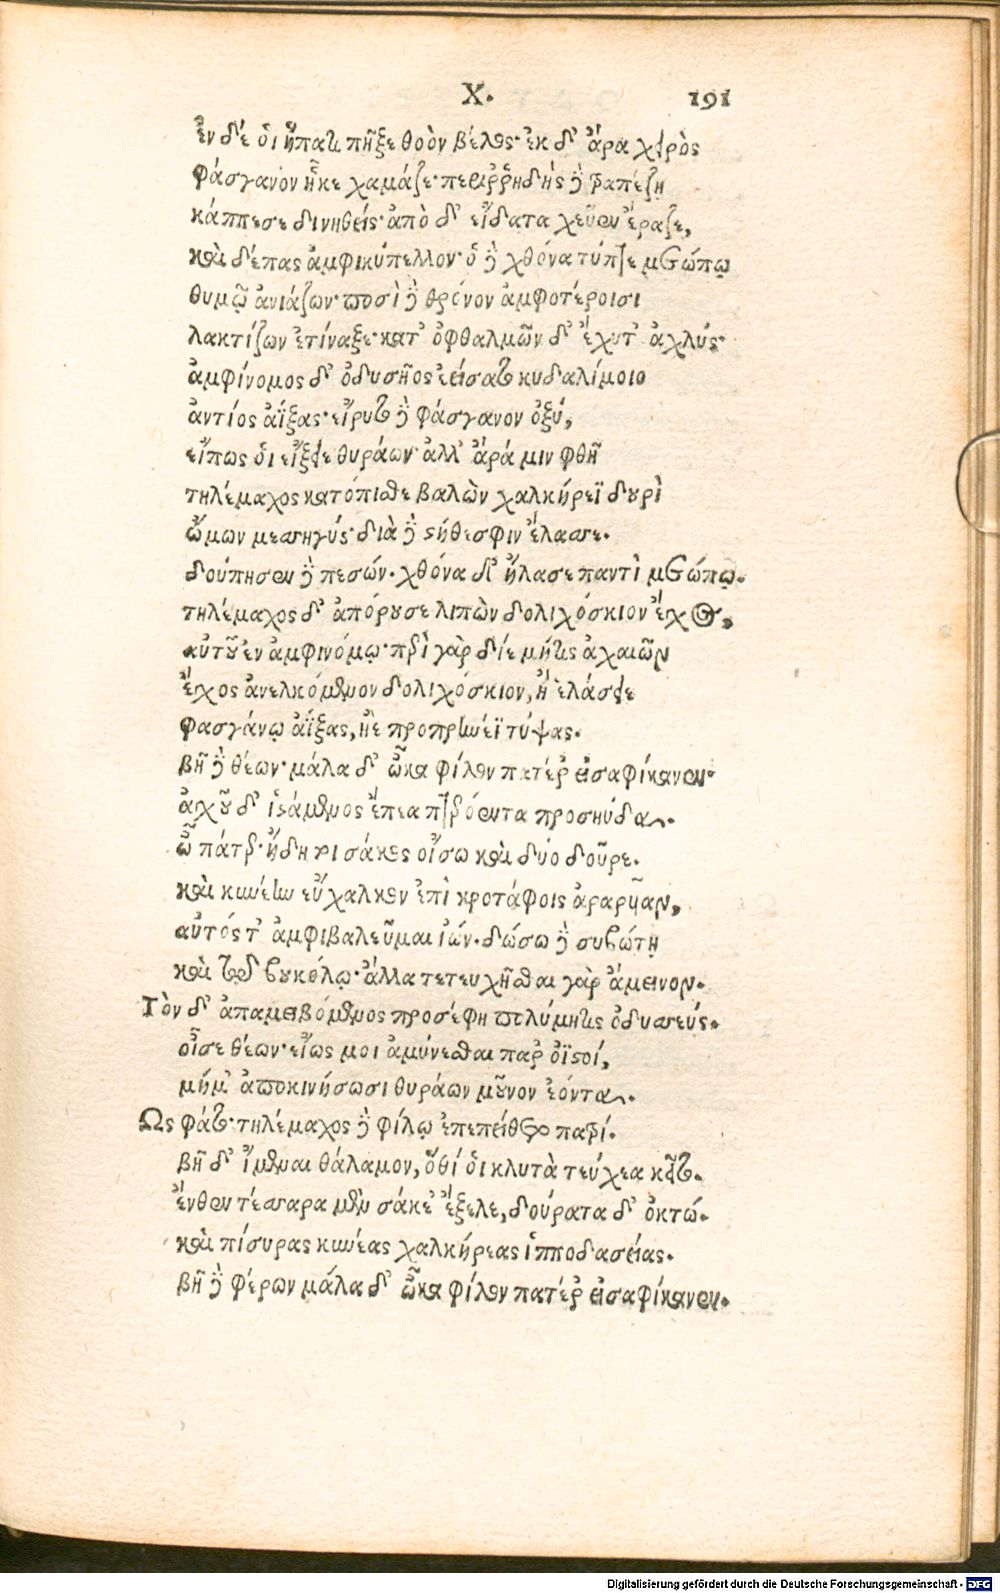 Χ. 191
ἐν δέ οἱ ἥπατι πῆξε θοὸν βέλος· ἐκ δ' ἄρα χειρὸς
φάσγανον ἧκε χαμάζε· περιρρηδὴς δὲ τραπέζῃ
κάππεσε δινηθείς· ἀπὸ δ' εἴδατα χεῦεν ἔραζε,
καὶ δέπας ἀμφικύπελλον· ὁ δὲ χθόνα τύπτε μετώπῳ
θυμῷ ἀνιάζων· ποσὶ δὲ θρόνον ἀμφοτέροισι
λακτίζων ἐτίναξε· κατ' ὀφθαλμῶν δ' ἔχυτ' ἀχλύς·
ἀμφίνομος δ' ὀδυσῆος ἐείσατο κυδαλίμοιο
ἀντίος ἀΐξας· εἴρυτο δὲ φάσγανον ὀξύ,
εἴπως οἱ εἴξειε θυράων· ἀλλ' ἄρά μιν φθῆ
τηλέμαχος κατόπισθε βαλὼν χαλκήρεϊ δουρὶ
ὤμων μεσσηγύς· διὰ δὲ στήθεσφιν ἔλασσε.
δούπησεν δὲ πεσών. χθόνα δ' ἤλασε παντὶ μετώπῳ.
τηλέμαχος δ' ἀπόρουσε λιπὼν δολιχόσκιον ἔγχος,
αὐτοῦ ἐν ἀμφινόμῳ· περὶ γὰρ δίε μήτις ἀχαιῶν
ἔγχος ἀνελκόμενον δολιχόσκιον, ἢ ἐλάσειε
φασγάνῳ ἀΐξας, ἠὲ προπρηνέϊ τύψας.
βῆ δὲ θέων· μάλα δ' ὦκα φίλον πατέρ' εἰσαφίκανεν·
ἀγχοῦ δ' ἱστάμενος ἔπεα πτερόεντα προσηύδα.
ὦ πάτερ· ἤδη τοι σάκος οἴσω καὶ δύο δοῦρε.
καὶ κυνέην εὔχαλκον ἐπὶ κροτάφοις ἀραρυῖαν,
αὐτός τ' ἀμφιβαλεῦμαι ἰών. δώσω δὲ συβώτῃ
καὶ τῷδ βουκόλῳ· ἄλλα τετευχῆσθαι γὰρ ἄμεινον.
Τὸν δ' ἀπαμειβόμενος προσέφη πολύμητις ὀδυσσεύς.
οἶσε θέων· εἵως μοι ἀμύνεσθαι παρ' ὀϊστοί,
μήμ' ἀποκινήσωσι θυράων μοῦνον ἐόντα.
Ως φάτο· τηλέμαχος δὲ φίλῳ ἐπεπείθετο πατρί.
βῆ δ' ἴμεναι θάλαμον, ὅθί οἱ κλυτὰ τεύχεα κεῖτο.
ἔνθεν τέσσαρα μὲν σάκε' ἔξελε, δούρατα δ' ὀκτώ.
καὶ πίσυρας κυνέας χαλκήρεας ἱπποδασείας.
βῆ δὲ φέρων μάλα δ' ὦκα φίλον πατέρ' εἰσαφίκανεν.
Digitalisierung gefördert durch die Deutsche Forschungsgemeinschaft - DFG